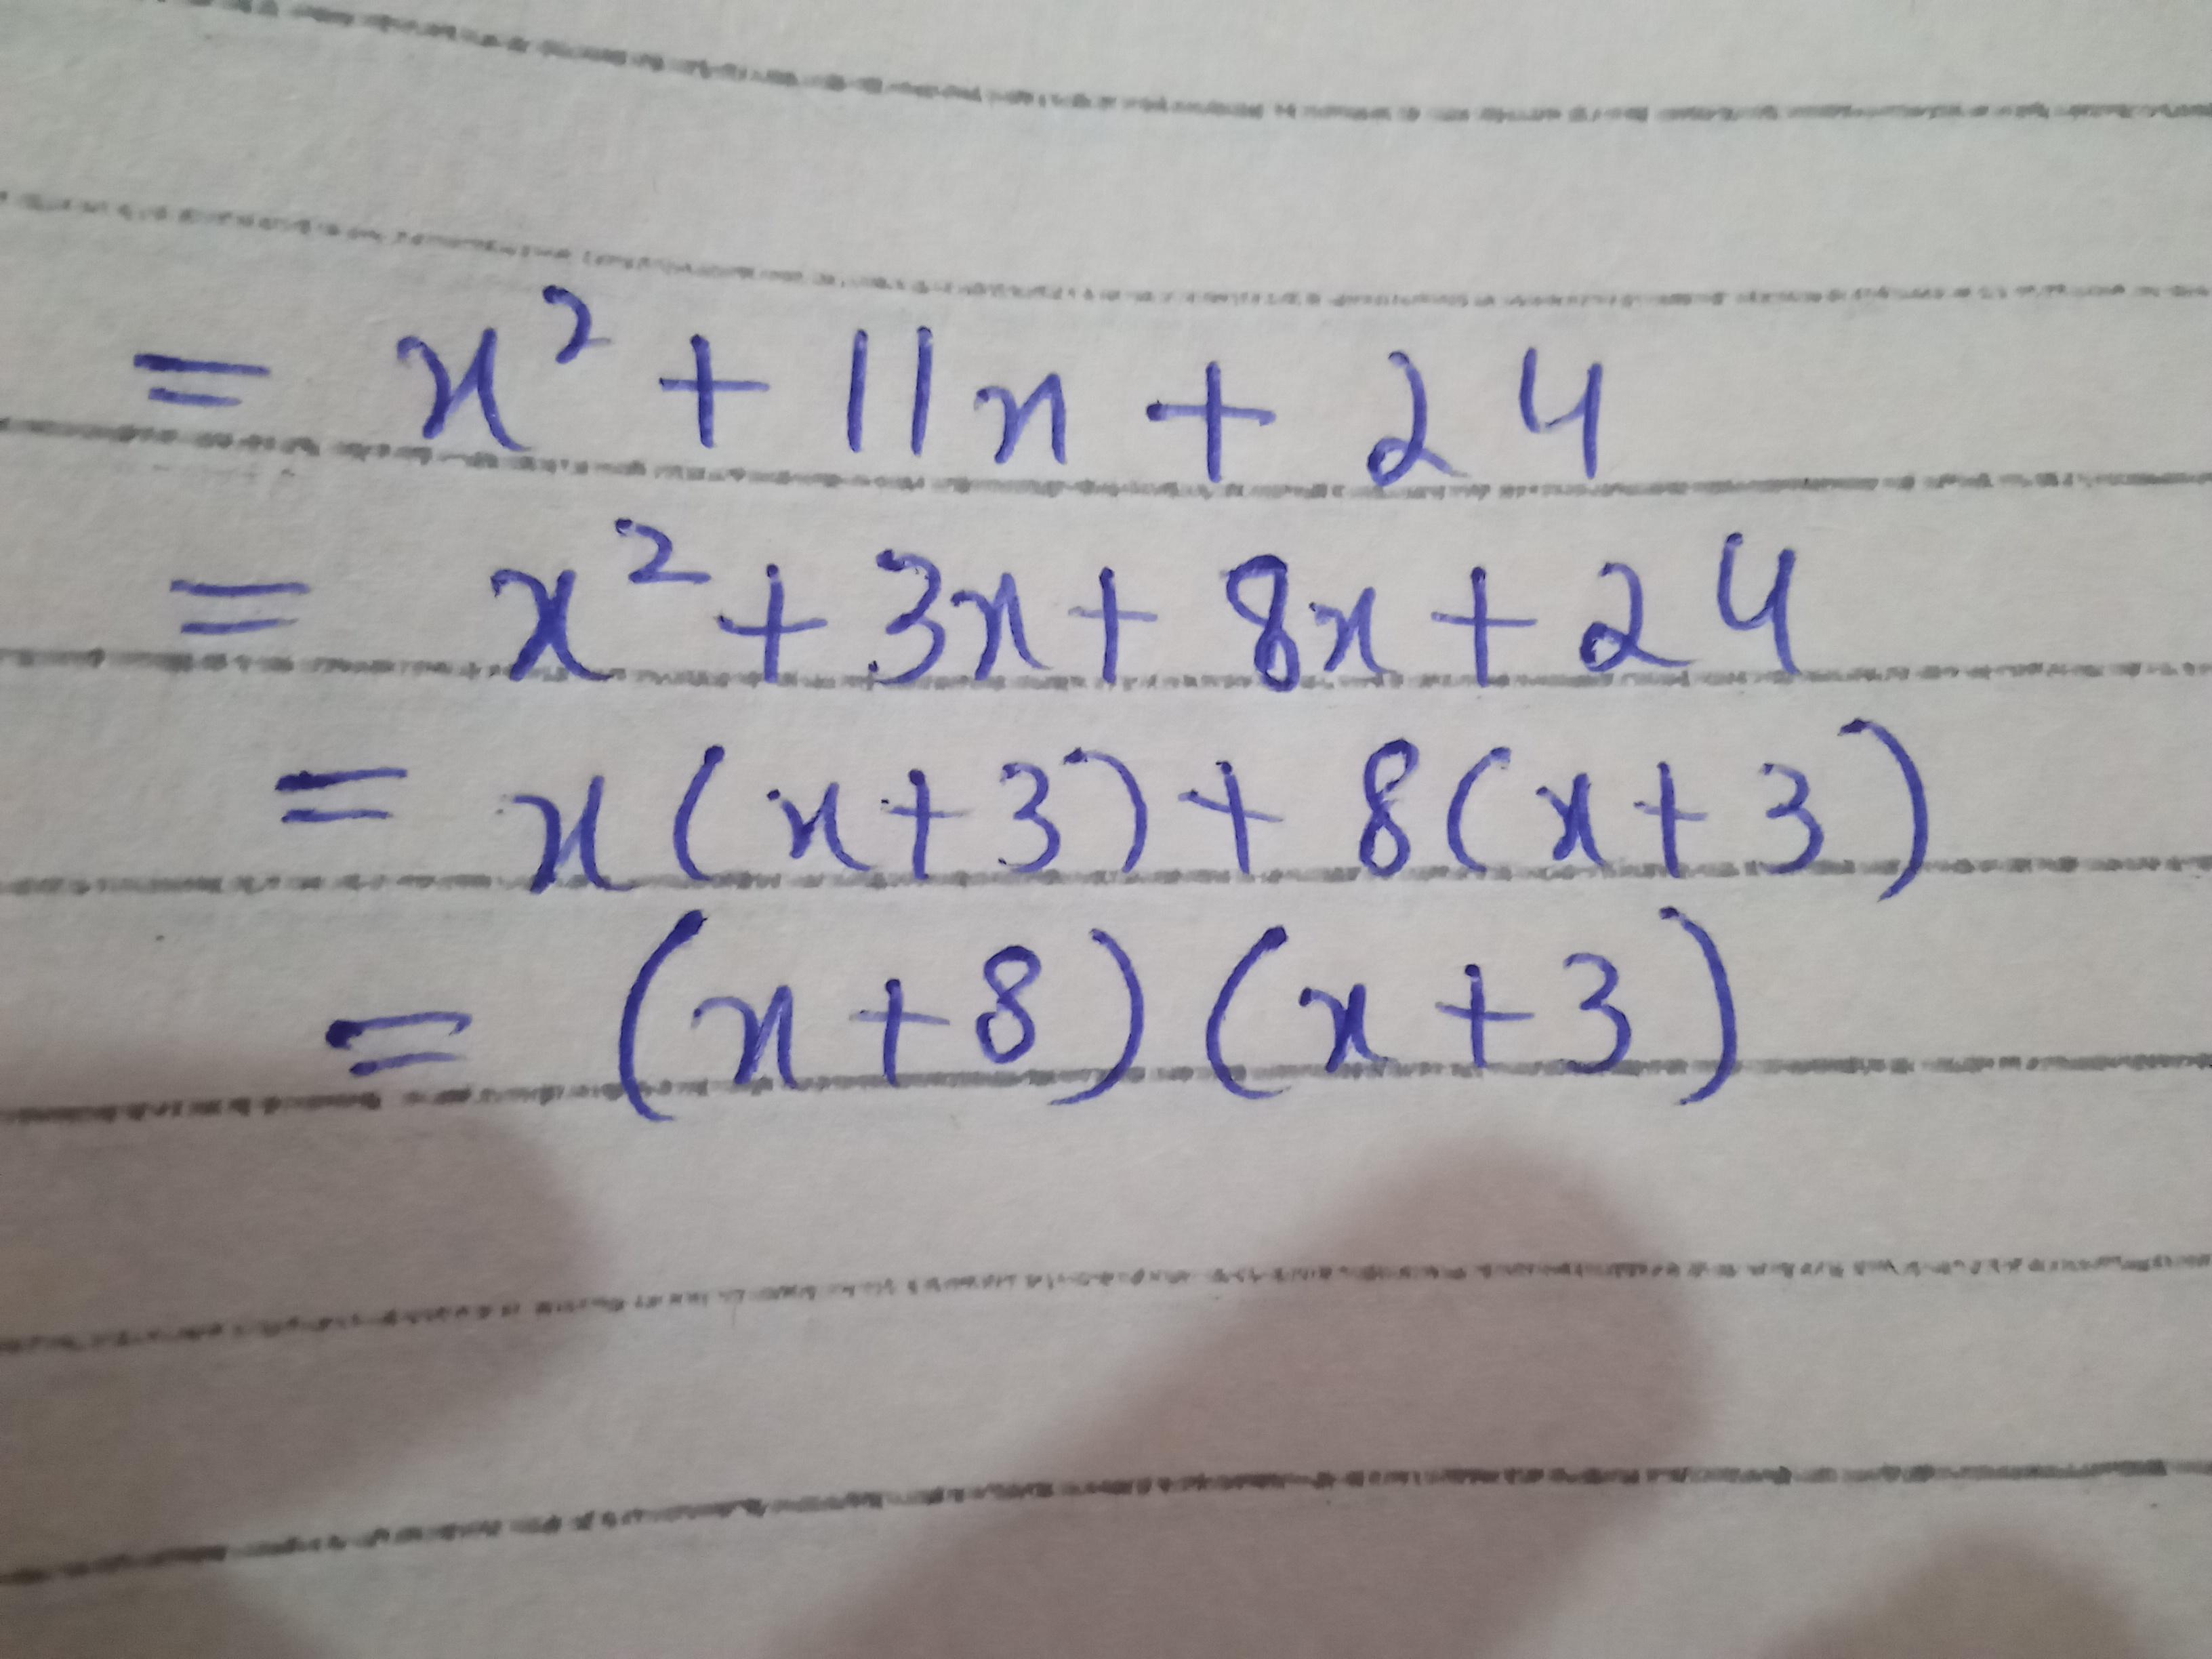 = x² + 11x + 24
= x² + 3x + 8x + 24
= x(x+3) + 8(x+3)
= (x+8)(x+3)